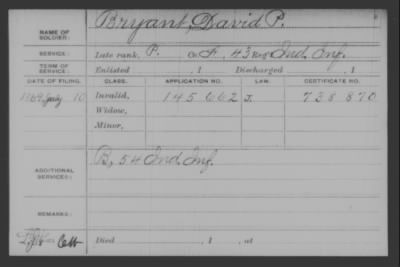 NAME OF SOLDIER: Bryant, David P.
SERVICE: Late rank, P. Co. F, 43 Reg't Ind. Inf.
TERM OF SERVICE: Enlisted , 1 Discharged , 1
DATE OF FILING. CLASS. APPLICATION NO. LAW. CERTIFICATE NO.
1869 July 10 Invalid, 145662 J. 738870
Widow,
Minor,
ADDITIONAL SERVICES: B, 54 Ind. Inf.
REMARKS:
Died , 1 , at